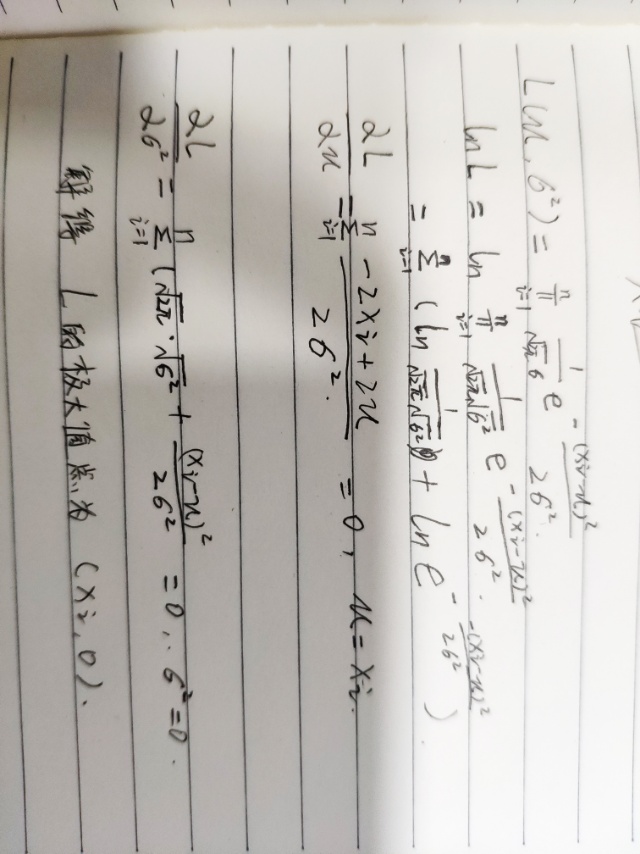 L(μ, σ²) = ∏_{i=1}^{n} 1/(√2π σ) e^{-(xi-μ)²/2σ²}.
ln L = ln ∏_{i=1}^{n} 1/(√2π √σ²) e^{-(xi-μ)²/2σ²}.
= ∑_{i=1}^{n} (ln 1/(√2π √σ²) + ln e^{-(xi-μ)²/2σ²}).
∂L/∂μ = ∑_{i=1}^{n} (-2xi+2μ)/2σ². = 0, μ = xi.
∂L/∂σ² = ∑_{i=1}^{n} (√2π · √σ² + (xi-μ)²/2σ² = 0, ∴ σ² = 0.
解得 L 的极大值点为 (xi, 0).